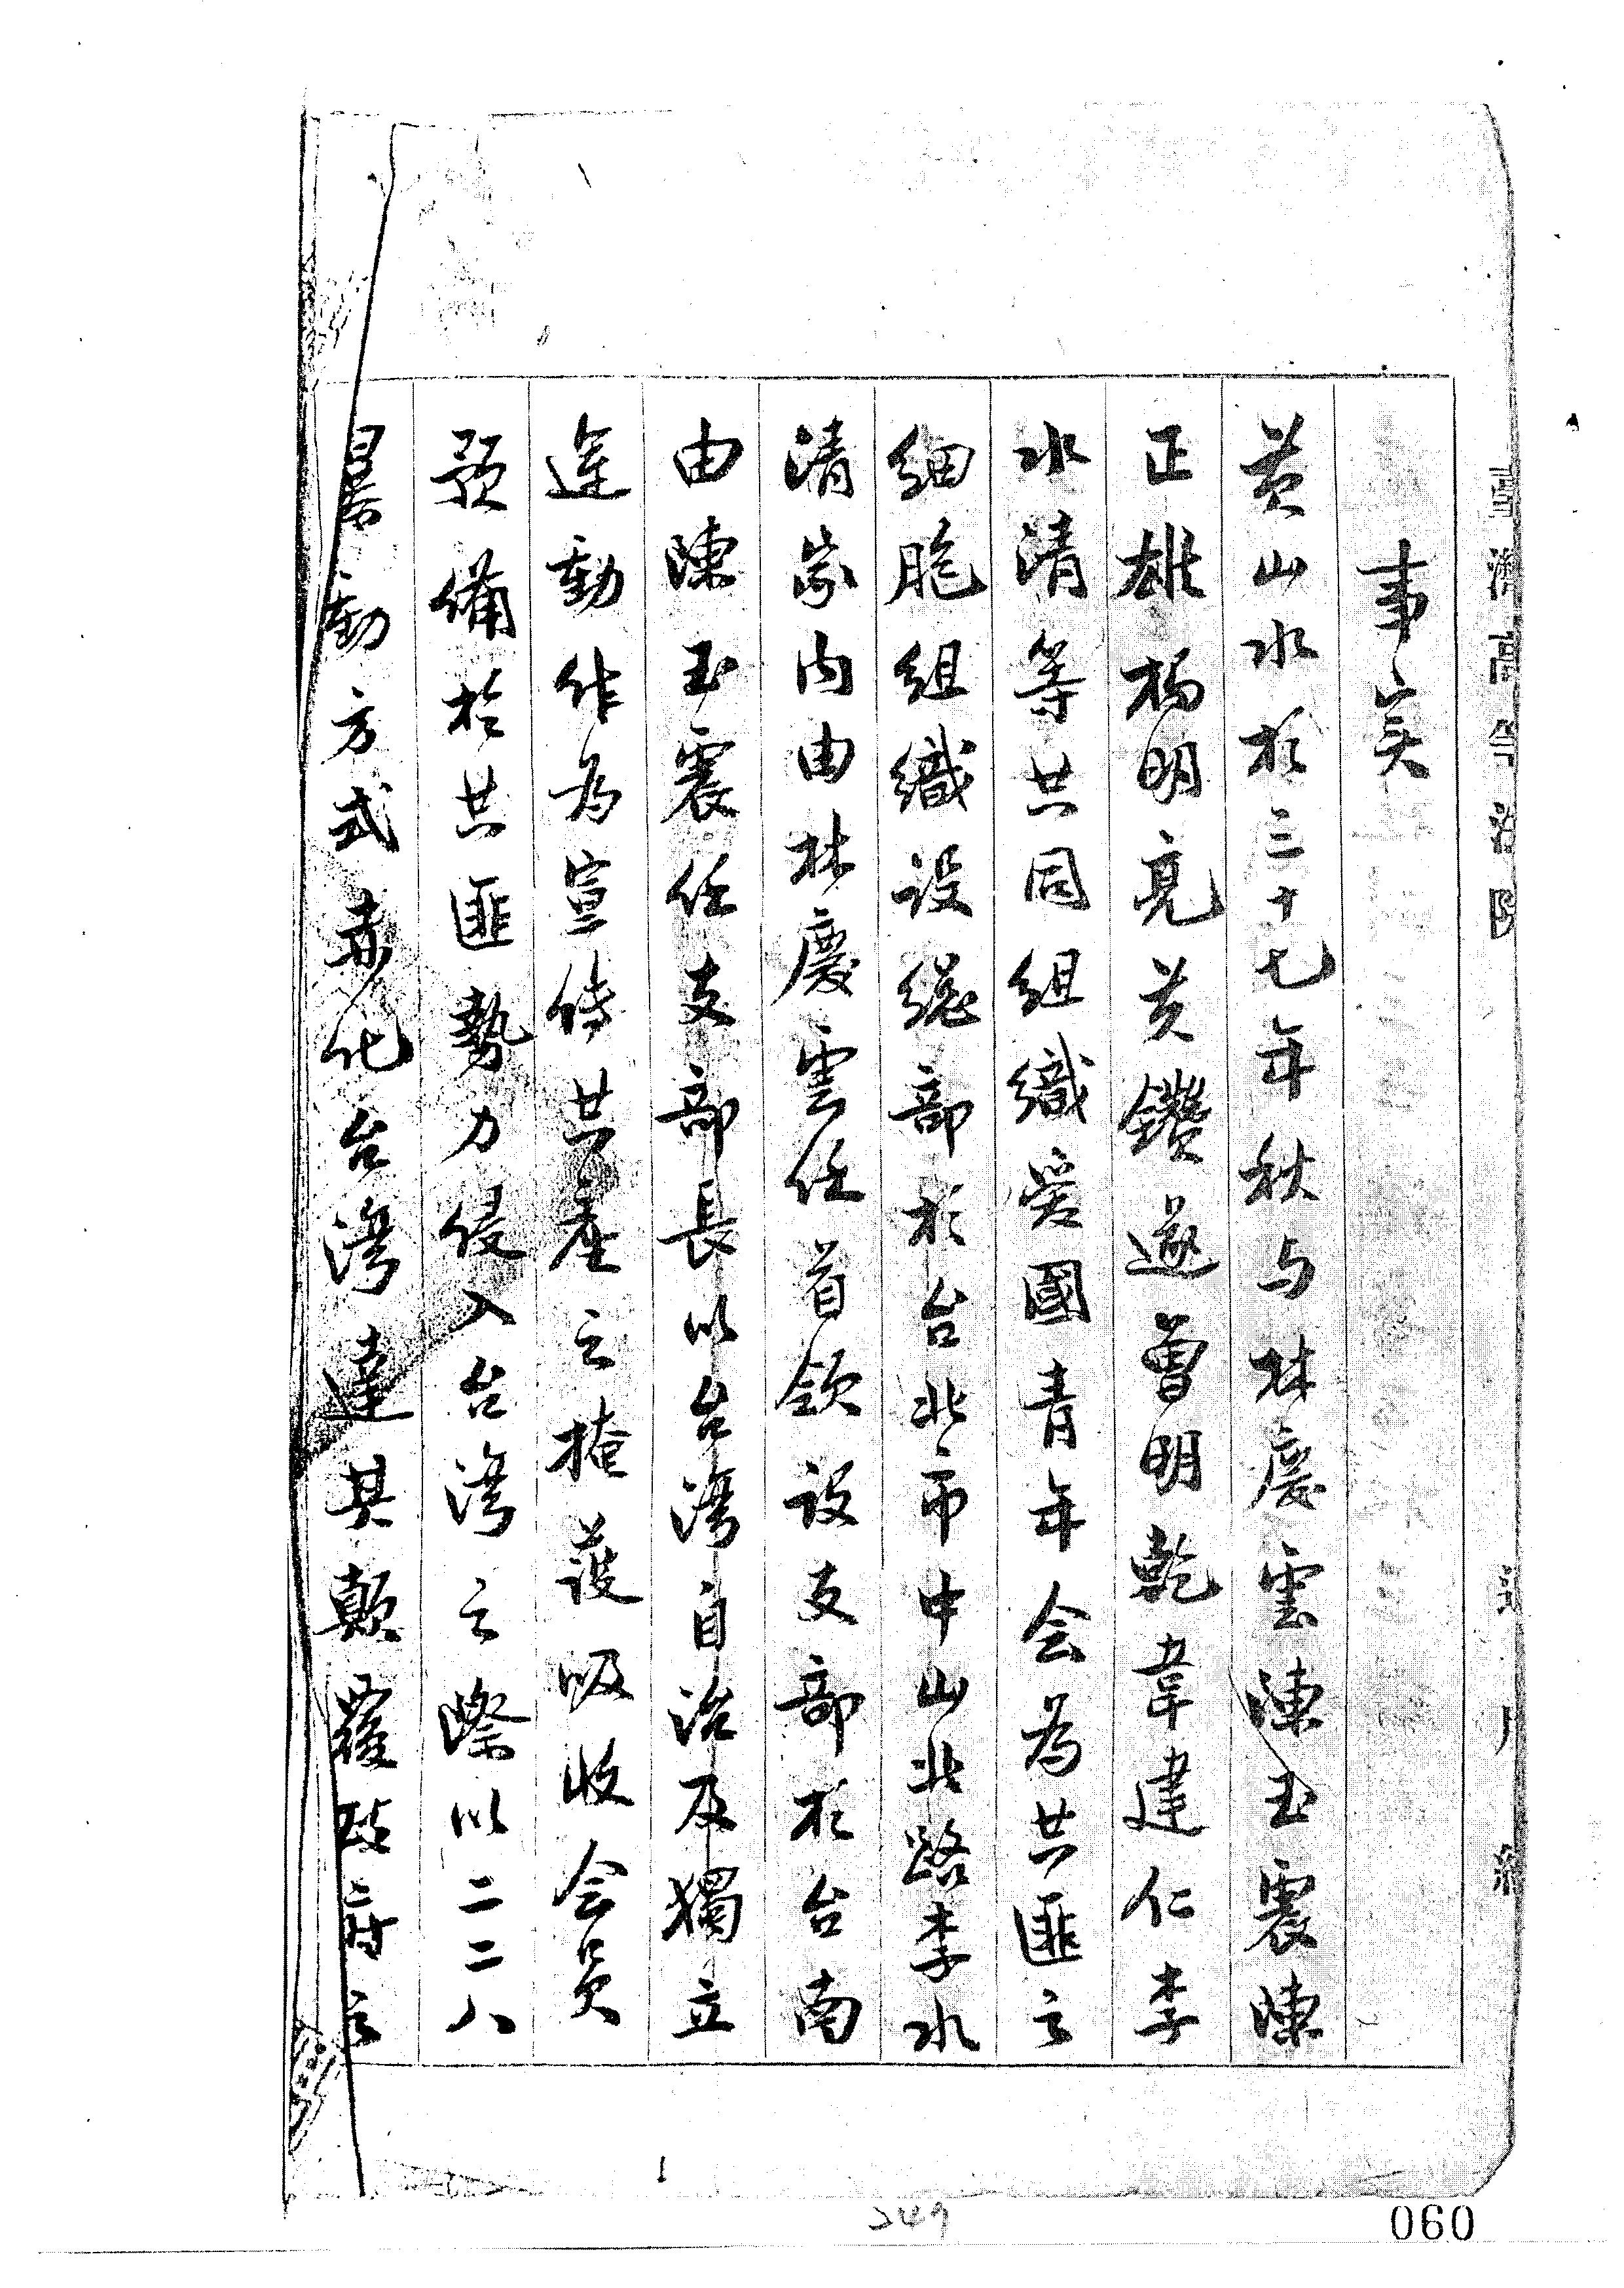 臺灣高等法院
用紙
事实
黄山水於三十七年秋与林慶雲陳玉震陳
正雄楊明亮黄鑽遂曽明乾韋建仁李
水清等共同組織爱國青年会為共匪之
細胞組織设總部於台北市中山北路李水
清家内由林慶雲任首領设支部於台南
由陳玉震任支部長以台湾自治及獨立
運動作為宣传共產之掩護吸收会員
预備於共匪勢力侵入台湾之際以二二八
暴動方式赤化台湾達其顛覆政府之
249
060